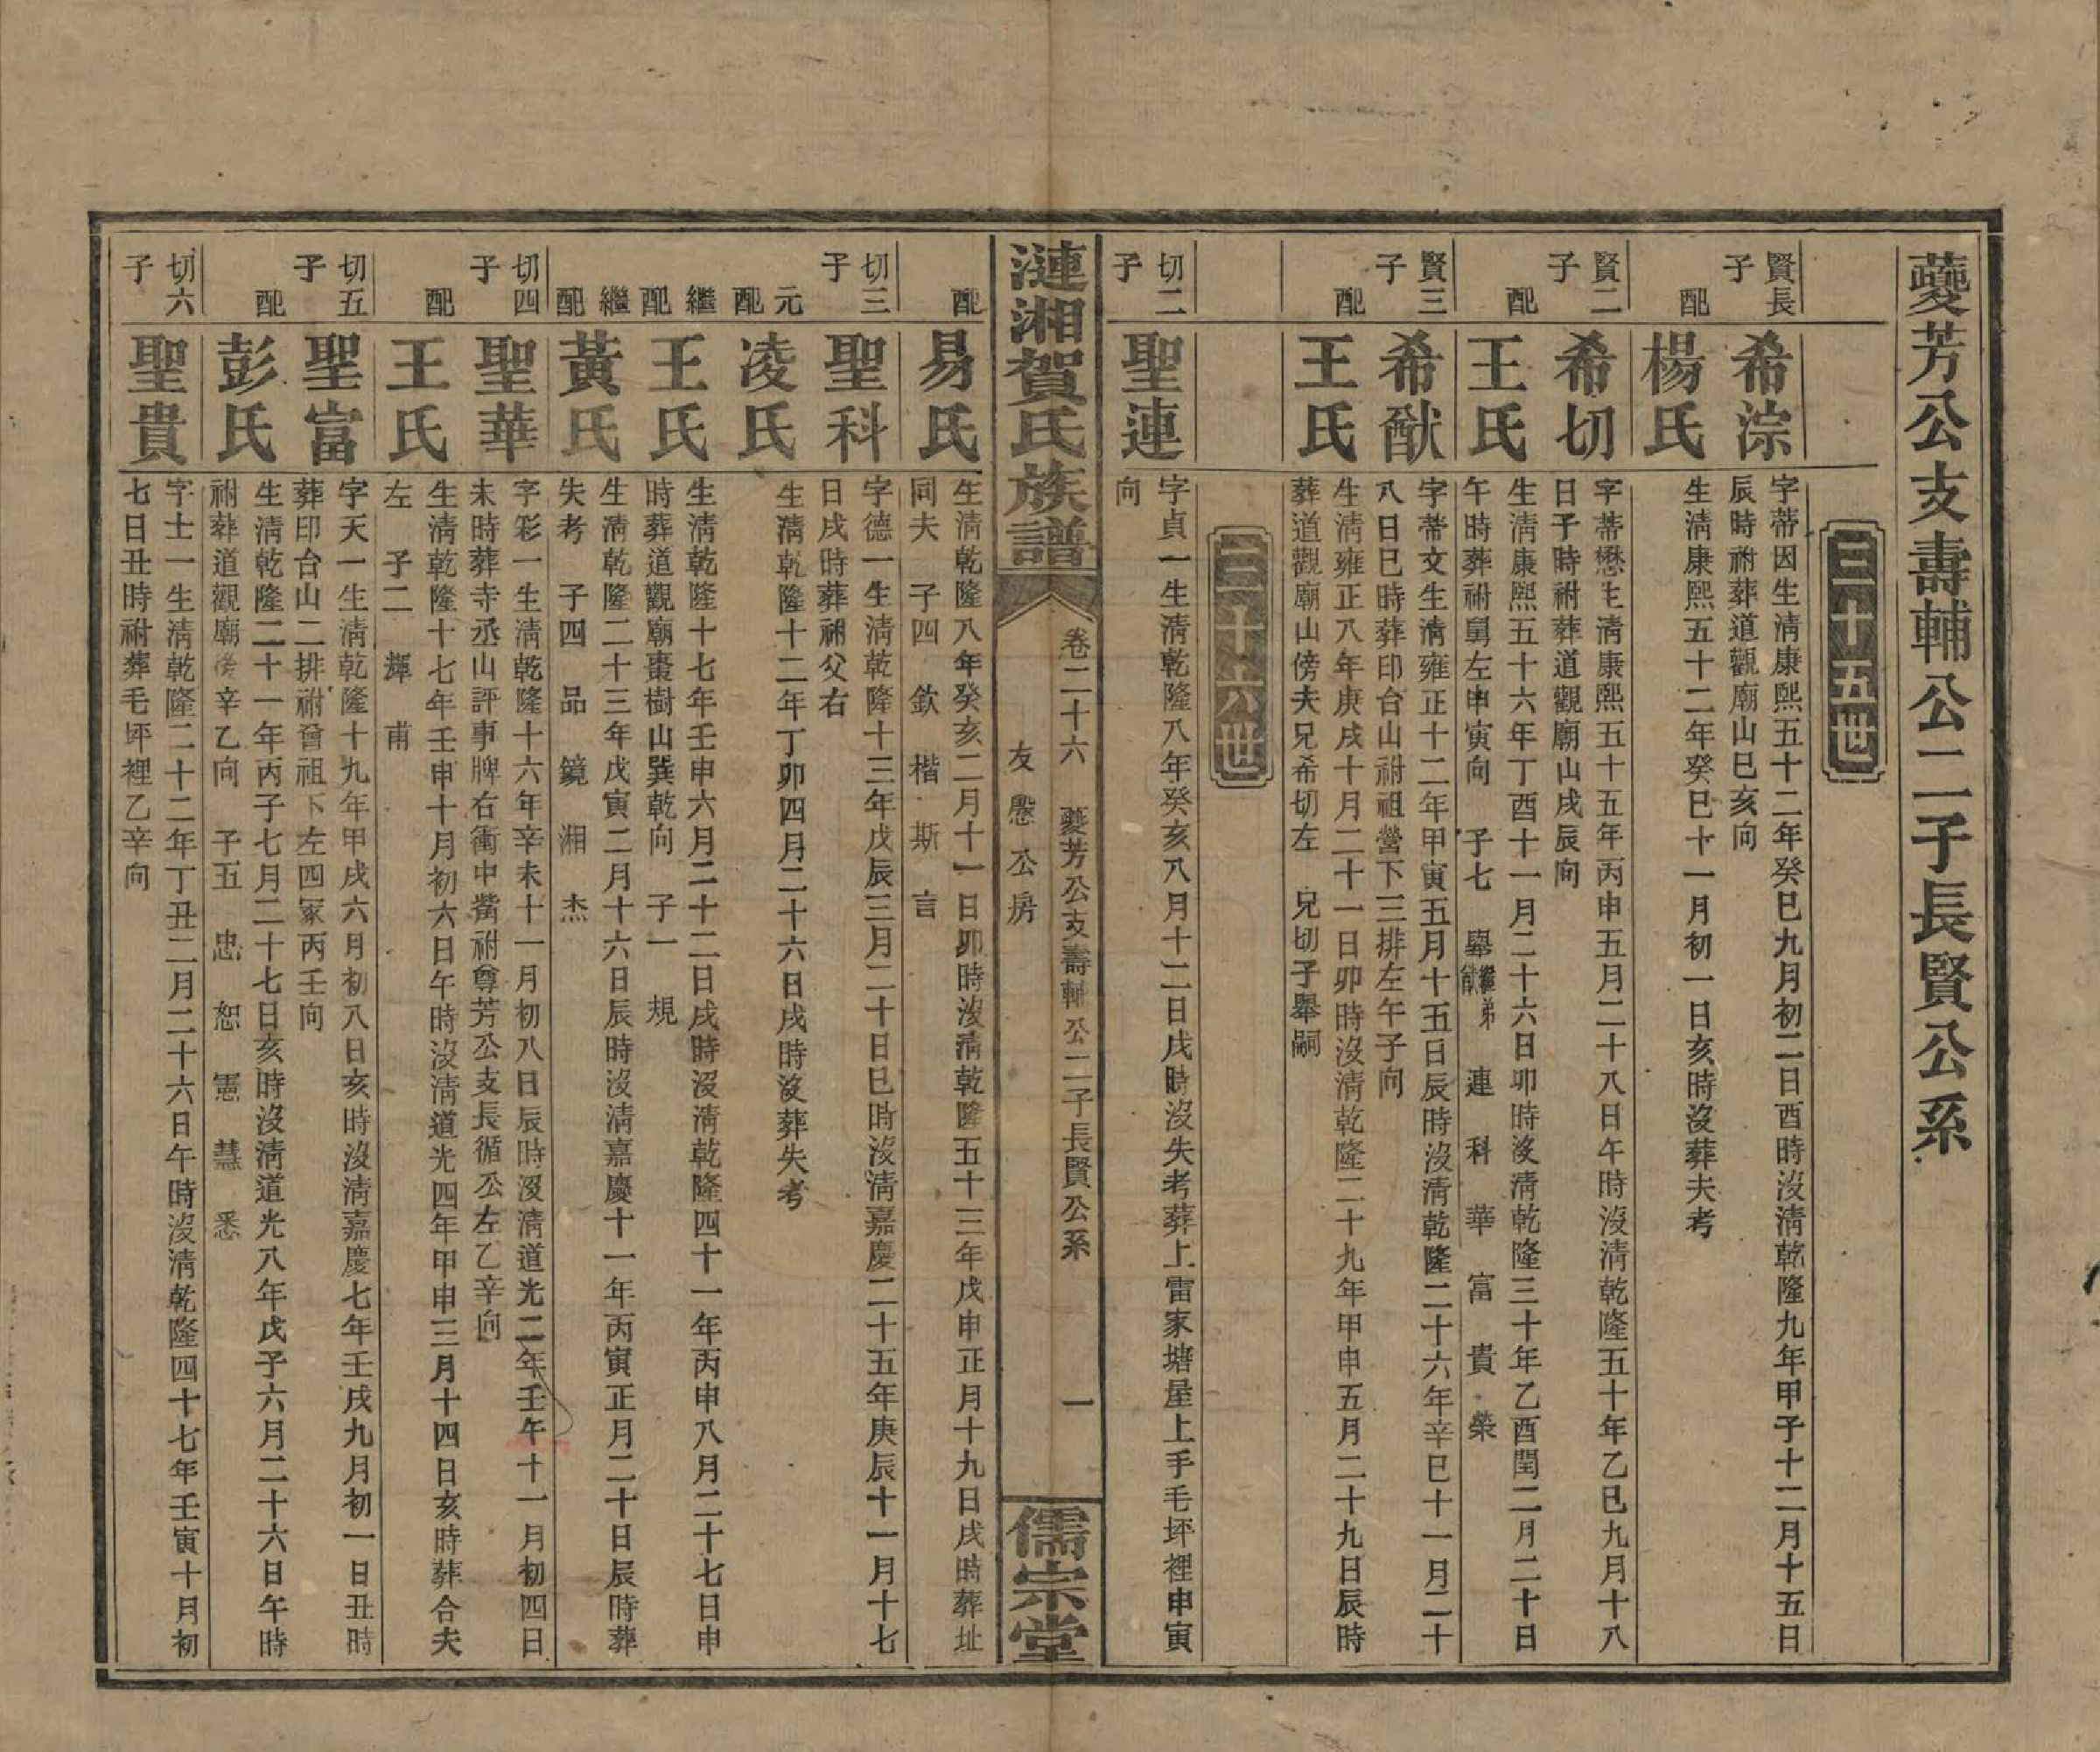 夔芳公支壽輔公二子長賢公系
三十五世
賢長子
希淙
字蒂因生淸康熙五十二年癸巳九月初二日酉時沒淸乾隆九年甲子十二月十五日
辰時祔葬道觀廟山巳亥向
配
楊氏
生淸康熙五十二年癸巳十一月初一日亥時沒葬失考
賢二子
希切
字蒂懋生淸康熙五十五年丙申五月二十八日午時沒淸乾隆五十年乙巳九月十八
日子時祔葬道觀廟山戌辰向
配
王氏
生淸康熙五十六年丁酉十一月二十六日卯時沒淸乾隆三十年乙酉閏二月二十日
午時葬祔舅左申寅向 子七 舉繼弟猷 連 科 華 富 貴 榮
賢三子
希猷
字蒂文生淸雍正十二年甲寅五月十五日辰時沒淸乾隆二十六年辛巳十一月二十
八日巳時葬印台山祔祖塋下三排左午子向
配
王氏
生淸雍正八年庚戌十月二十一日卯時沒淸乾隆二十九年甲申五月二十九日辰時
葬道觀廟山傍夫兄希切左 兄切子舉嗣
三十六世
切二子
聖連
字貞一生淸乾隆八年癸亥八月十二日戌時沒失考葬上雷家塘屋上手毛坪裡申寅
向
漣湘賀氏族譜
卷二十六 夔芳公支壽輔公二子長賢公系 一
友慇公房
儒宗堂
配
易氏
生淸乾隆八年癸亥二月十一日卯時沒淸乾隆五十三年戊申正月十九日戌時葬址
同夫 子四 欽 楷 斯 言
切三子
聖科
字德一生淸乾隆十三年戊辰三月二十日巳時沒淸嘉慶二十五年庚辰十一月十七
日戌時葬祔父右
元配
凌氏
生淸乾隆十二年丁卯四月二十六日戌時沒葬失考
繼配
王氏
生淸乾隆十七年壬申六月二十二日戌時沒淸乾隆四十一年丙申八月二十七日申
時葬道觀廟棗樹山巽乾向 子一 規
繼配
黃氏
生淸乾隆二十三年戊寅二月十六日辰時沒淸嘉慶十一年丙寅正月二十日辰時葬
失考 子四 品 鏡 湘 杰
切四子
聖華
字彩一生淸乾隆十六年辛未十一月初八日辰時沒淸道光二年壬午十一月初四日
未時葬寺丞山評事牌右衝中嘴祔尊芳公支長循公左乙辛向
配
王氏
生淸乾隆十七年壬申十月初六日午時沒淸道光四年甲申三月十四日亥時葬合夫
左 子二 輝 甫
切五子
聖富
字天一生淸乾隆十九年甲戌六月初八日亥時沒淸嘉慶七年壬戌九月初一日丑時
葬印台山二排祔曾祖下左四冢丙壬向
配
彭氏
生淸乾隆二十一年丙子七月二十七日亥時沒淸道光八年戊子六月二十六日午時
祔葬道觀廟後辛乙向 子五 忠 恕 憲 慧 悉
切六子
聖貴
字士一生淸乾隆二十二年丁丑二月二十六日午時沒淸乾隆四十七年壬寅十月初
七日丑時祔葬毛坪裡乙辛向